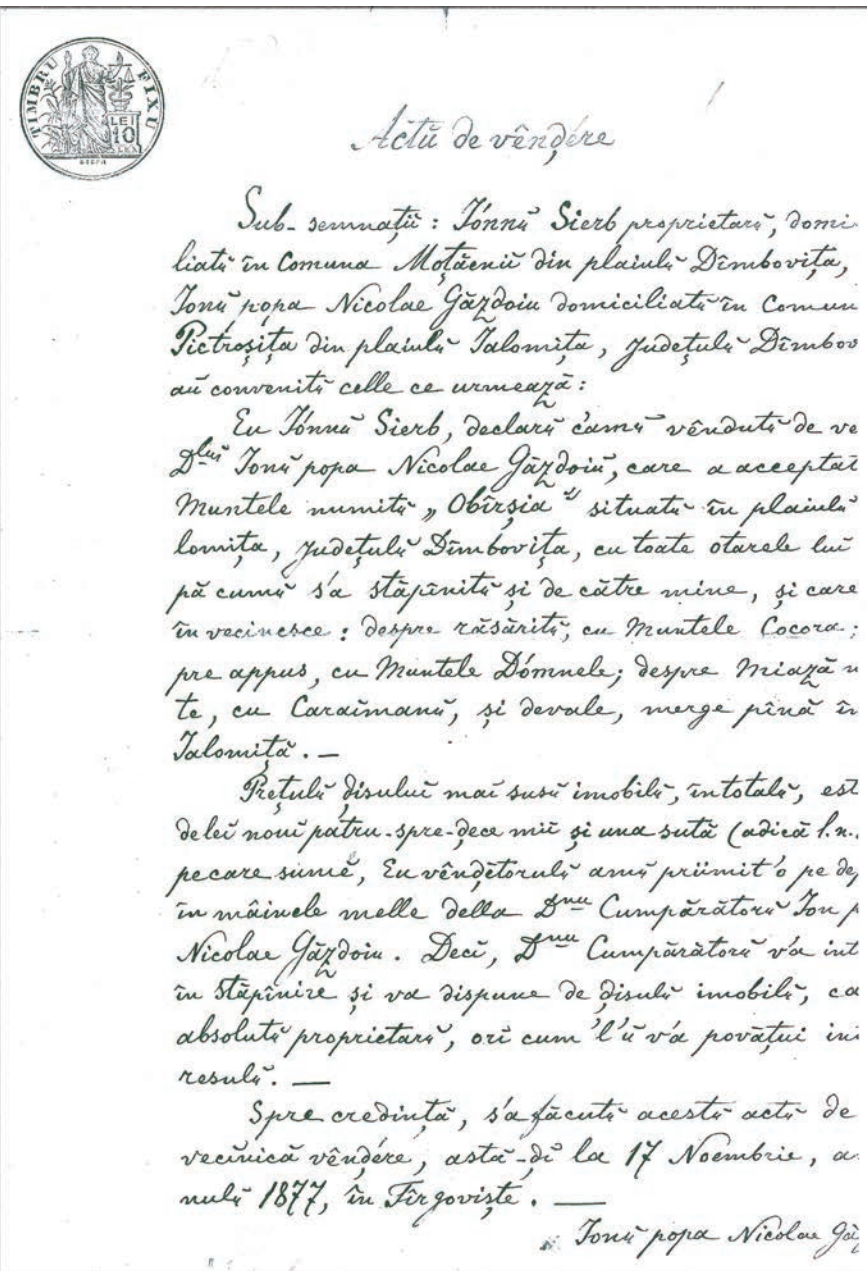 TIMBRU FIXU
LEI
10
Actŭ de vênḑére
Sub-semnațiĭ: Iónnŭ Sierb proprietarŭ, domi
liatŭ în Comuna Moțăeniĭ din plaiulŭ Dîmbovița,
Ionŭ popa Nicolae Găzdoiu domiciliatŭ în Comun
Pietroșița din plaiulŭ Ialomița, Județulŭ Dîmbov
aŭ convenitŭ celle ce urmează:
Eu Iónnŭ Sierb, declarŭ c'amŭ vêndutŭ de ve
Dluĭ Ionŭ popa Nicolae Găzdoiŭ, care a acceptat
Muntele numitŭ „Obîrșia” situatŭ în plaiulŭ
lomița, Județulŭ Dîmbovița, cu toate otarele luĭ
pă cumŭ s'a stăpînitŭ și de către mine, și care
în vecinesce: despre răsăritŭ, cu Muntele Cocora;
pre appus, cu Muntele Dómnele; despre Miază n
te, cu Caraĭmanŭ, și devale, merge pînă în
Ialomiță. —
Prețulŭ ḑisuluĭ maĭ susŭ imobilŭ, în totalŭ, est
de leĭ nouĭ patru-spre-ḑece miĭ și una sută (adică l.n.
pe care sumĕ, Eu vênḑĕtorulŭ amŭ priimit'o pe de
în mâinele melle della Dnu Cumpărătorŭ Ion p
Nicolae Găzdoiu. Decĭ, Dnu Cumpărătorŭ v'a int
în stăpînire și va dispune de ḑisulŭ imobilŭ, ca
absolutŭ proprietarŭ, orĭ cum 'l'ŭ v'a povățui in
resulŭ. —
Spre credință, s'a făcutŭ acestŭ actŭ de
vecinică vênḑére, astă-ḑĭ la 17 Noembrie, a
nulŭ 1877, în Tîrgoviște. —
Ionŭ popa Nicolae Gă